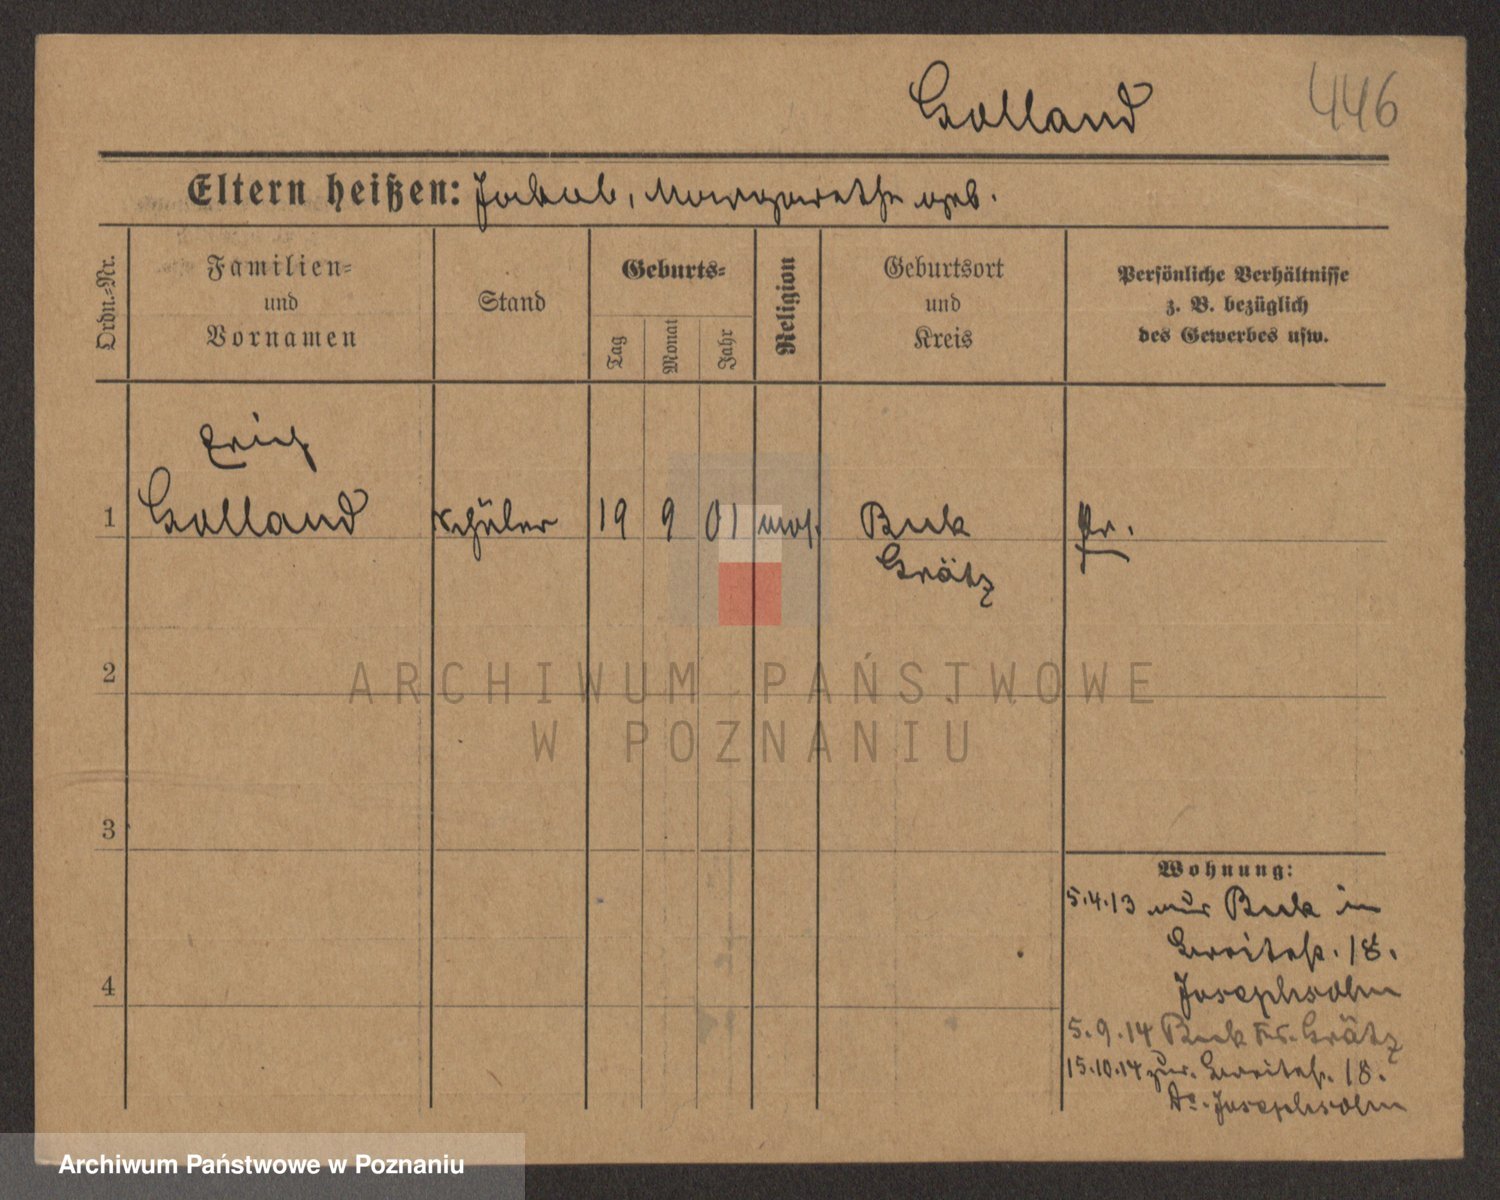 Golland 446
Eltern heißen: Jakob, Margarethe geb.
Ordn.=Nr.
Familien=
und
Vornamen
Stand
Geburts=
Tag
Monat
Jahr
Religion
Geburtsort
und
Kreis
Persönliche Verhältnisse
z. B. bezüglich
des Gewerbes usw.
Erich
1 Golland Schüler 19 9 01 mos. Buk Pr.
Grätz
2
3
4
Wohnung:
5.4.13 aus Buk in
Breitestr. 18.
Josephsohn
5.9.14 Buk Krs. Grätz
15.10.14 zur. Breitestr. 18.
Josephsohn
ARCHIWUM PAŃSTWOWE
W POZNANIU
Archiwum Państwowe w Poznaniu